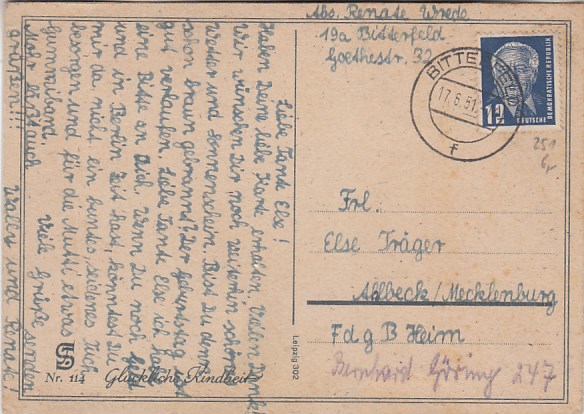 Abs. Renate Wrede
19a Bitterfeld
Goethestr. 32
BITTERFELD
17.6.51
f
12
DEUTSCHE
DEMOKRATISCHE REPUBLIK
251
Liebe Tante Else!
Haben Deine liebe Karte erhalten. Vielen Dank!
Wir wünschen Dir noch weiterhin schönes
Wetter und Sonnenschein. Bist Du denn
schon braun gebrannt? Der Geburtstag ist
gut verlaufen. Liebe Tante Else ich habe
eine Bitte an Dich. Wenn Du noch Geld
und in Berlin Zeit hast, könntest Du
mir da nicht ein buntes, seidenes Tuch
besorgen und für die Mutti etwas
Gummiband.
Viele Grüße senden
Walli und Renate
grüßen!!!
Frl.:
Else Träger
Ahlbeck/Mecklenburg
FdgB Heim
Bernhard Göring 247
Leipzig 302
Nr. 114
Glückliche Kindheit